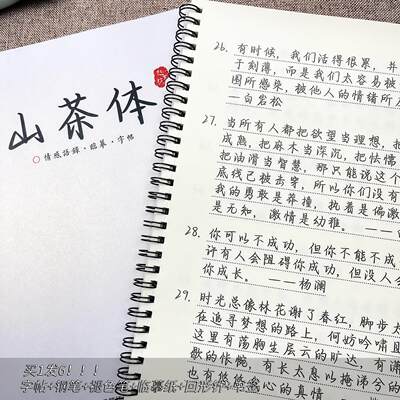 山茶体
情感语录·临摹·字帖
26. 有时候，我们活得很累，并
于刻薄，而是我们太容易被
围所感染，被他人的情绪所
—白岩松
27. 当所有人都把欲望当理想，把
成熟，把麻木当深沉，把怯懦
把油滑当智慧，那只能说这个
底线已被击穿，所以你们没有
我的勇敢是莽撞，执着是偏激
是无知，激情是幼稚。——
28. 你可以不成功，但你不能不成
许有人会阻碍你成功，但没人会
你成长。——杨澜
29. 时光总像林花谢了春红，脚步太
在追寻梦想的路上，何妨吟啸且
这里有荡胸生层云的旷达，有潇
歌的怅惘，有长太息以掩涕兮的
也有
心的真情
买1发6！！！
字帖+钢笔+褪色笔+临摹纸+回形针+笔